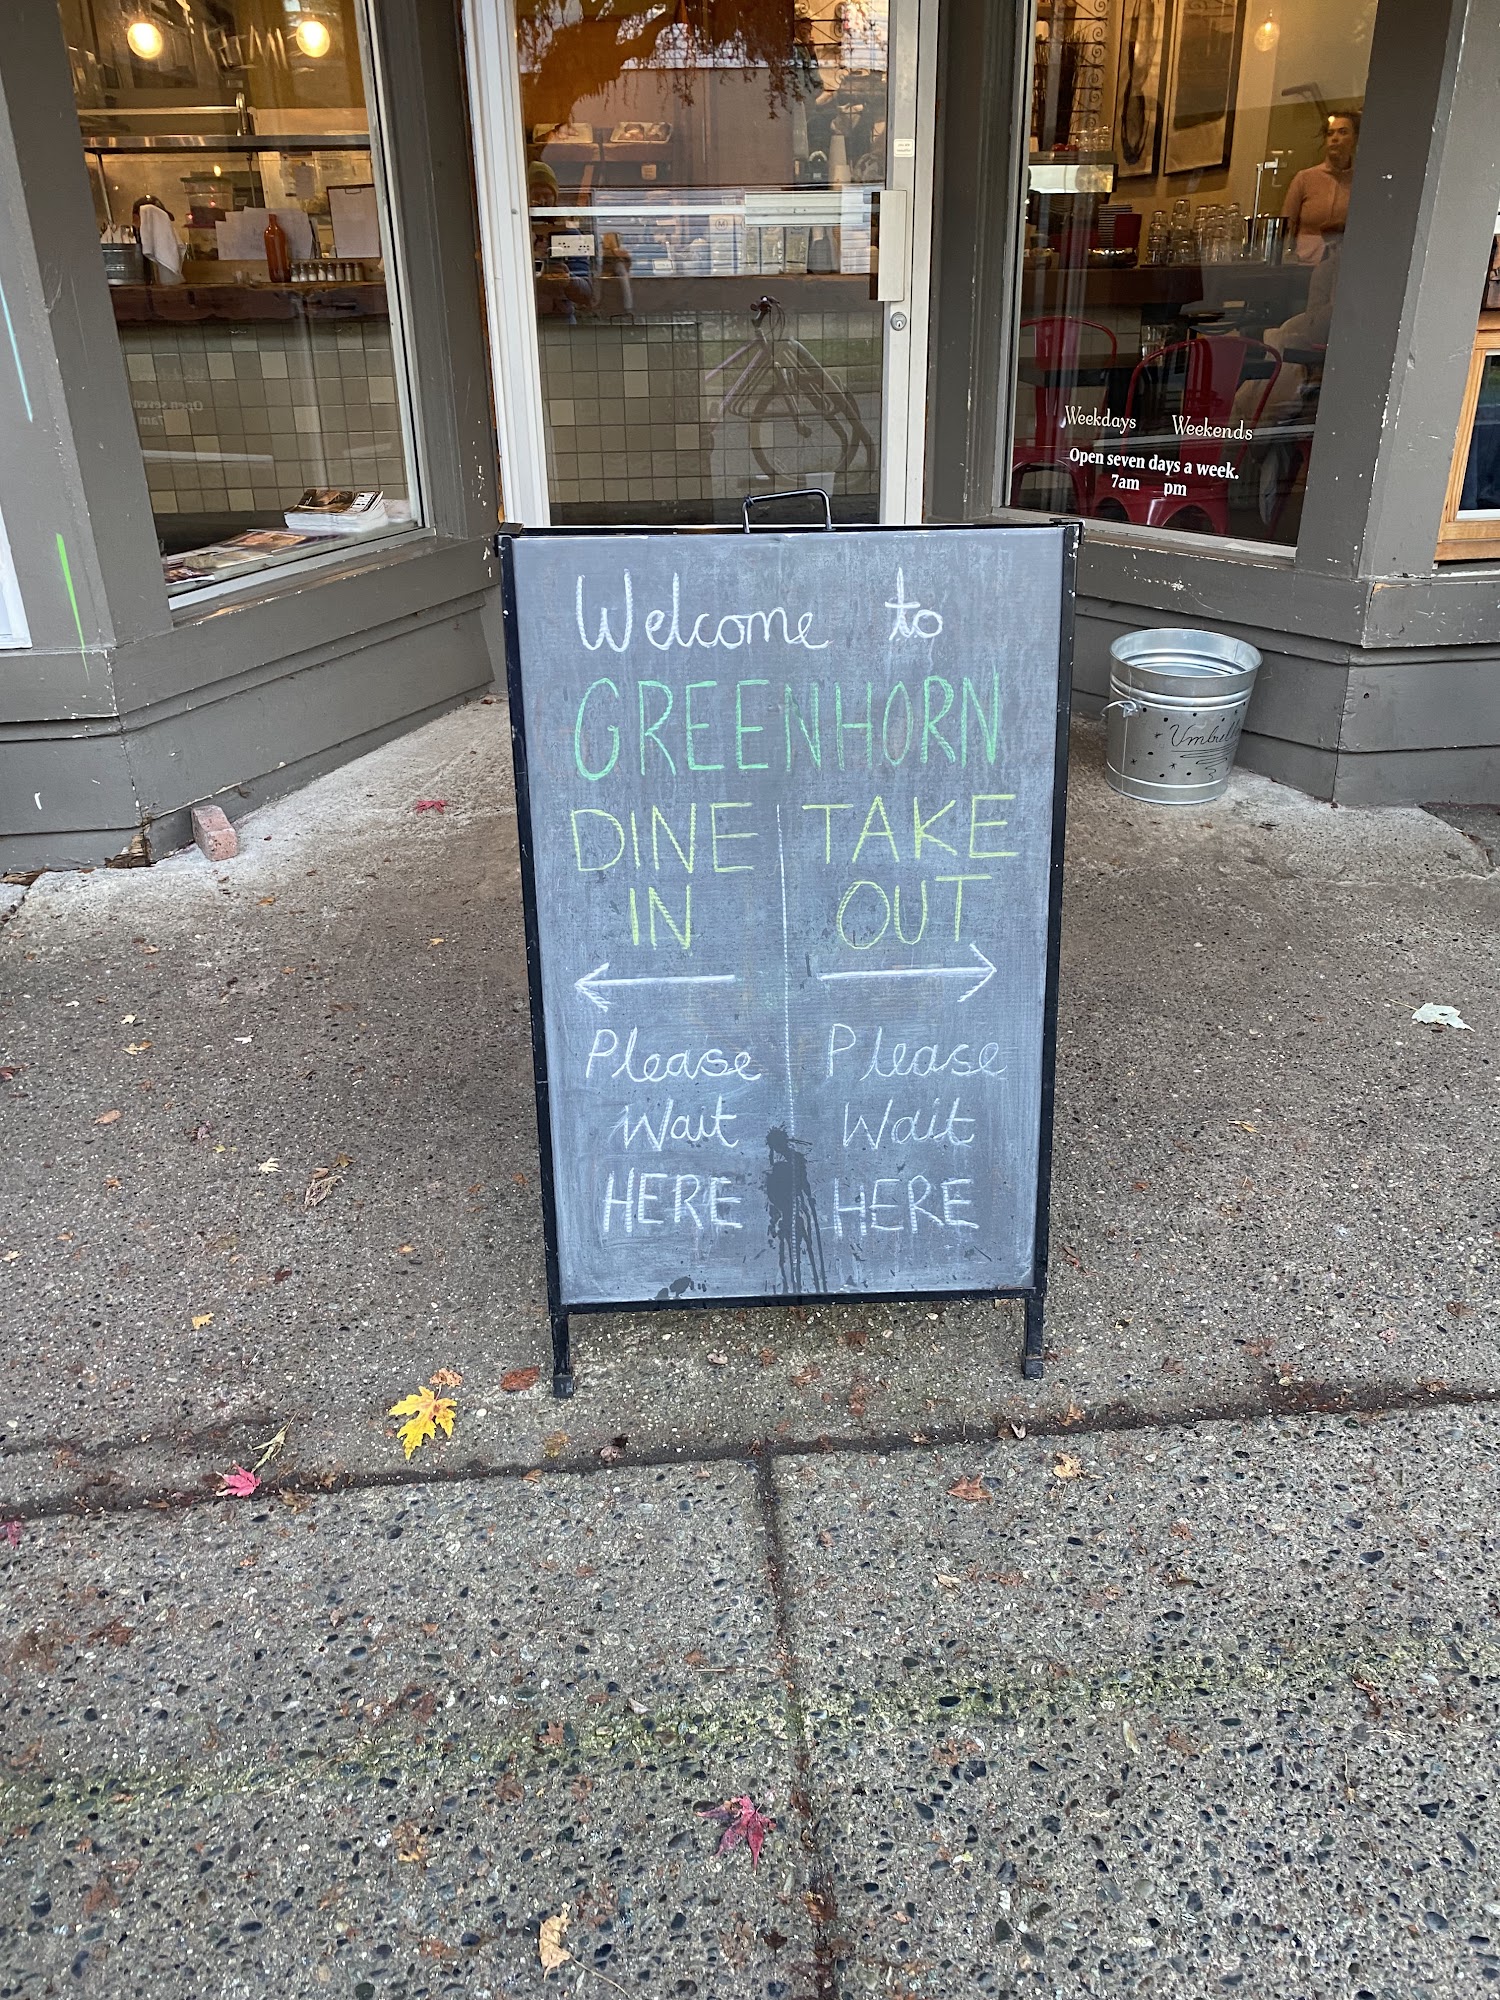 Weekdays Weekends
Open seven days a week.
7am pm
Welcome to
GREENHORN
DINE IN
TAKE OUT
Please
Wait
HERE
Please
Wait
HERE